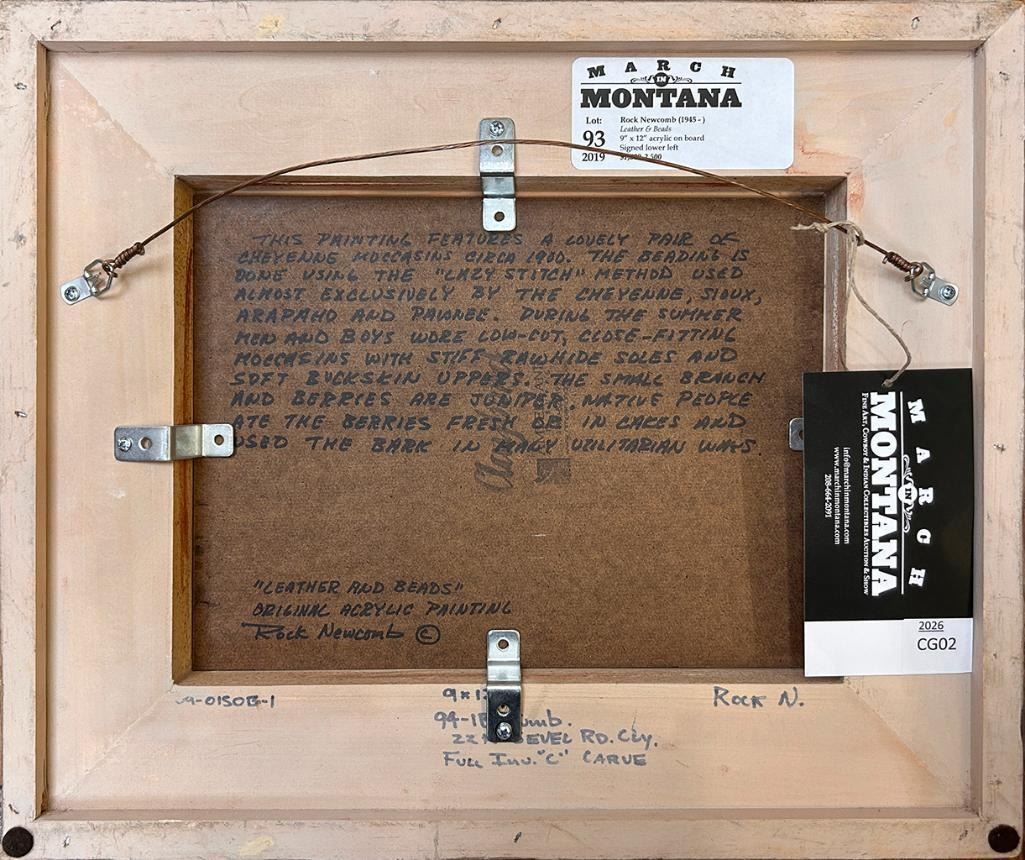 MARCH
IN
MONTANA
Lot:
93
2019
Rock Newcomb (1945 - )
Leather & Beads
9" x 12" acrylic on board
Signed lower left
THIS PAINTING FEATURES A LOVELY PAIR OF
CHEYENNE MOCCASINS CIRCA 1900. THE BEADING IS
DONE USING THE "LAZY STITCH" METHOD USED
ALMOST EXCLUSIVELY BY THE CHEYENNE, SIOUX,
ARAPAHO AND PAWNEE. DURING THE SUMMER
MEN AND BOYS WORE LOW-CUT, CLOSE-FITTING
MOCCASINS WITH STIFF RAWHIDE SOLES AND
SOFT BUCKSKIN UPPERS. THE SMALL BRANCH
AND BERRIES ARE JUNIPER. NATIVE PEOPLE
ATE THE BERRIES FRESH OR IN CAKES AND
USED THE BARK IN MANY UTILITARIAN WAYS
"LEATHER AND BEADS"
ORIGINAL ACRYLIC PAINTING
Rock Newcomb ©
MARCH
IN
MONTANA
FINE ART, COWBOY & INDIAN COLLECTIBLES AUCTION & SHOW
info@marchinmontana.com
www.marchinmontana.com
208-664-2091
2026
CG02
-0150B-1
ROCK N.
RD.
FULL INV. "C" CARVE